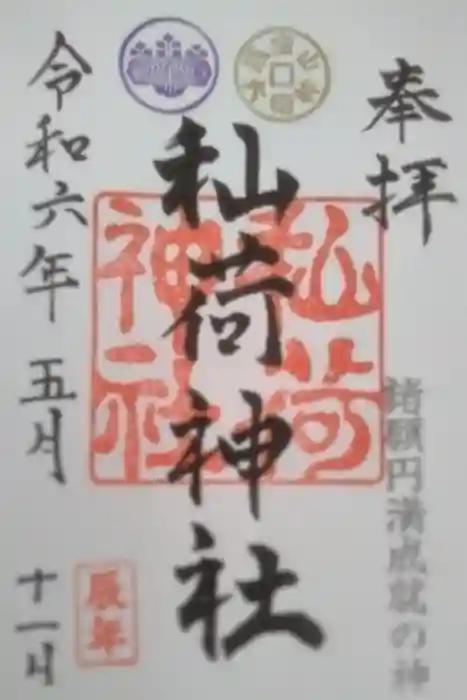 奉拝
諸願円満成就の神
秈荷神社
秈荷神社
辰年
令和六年五月
十一日